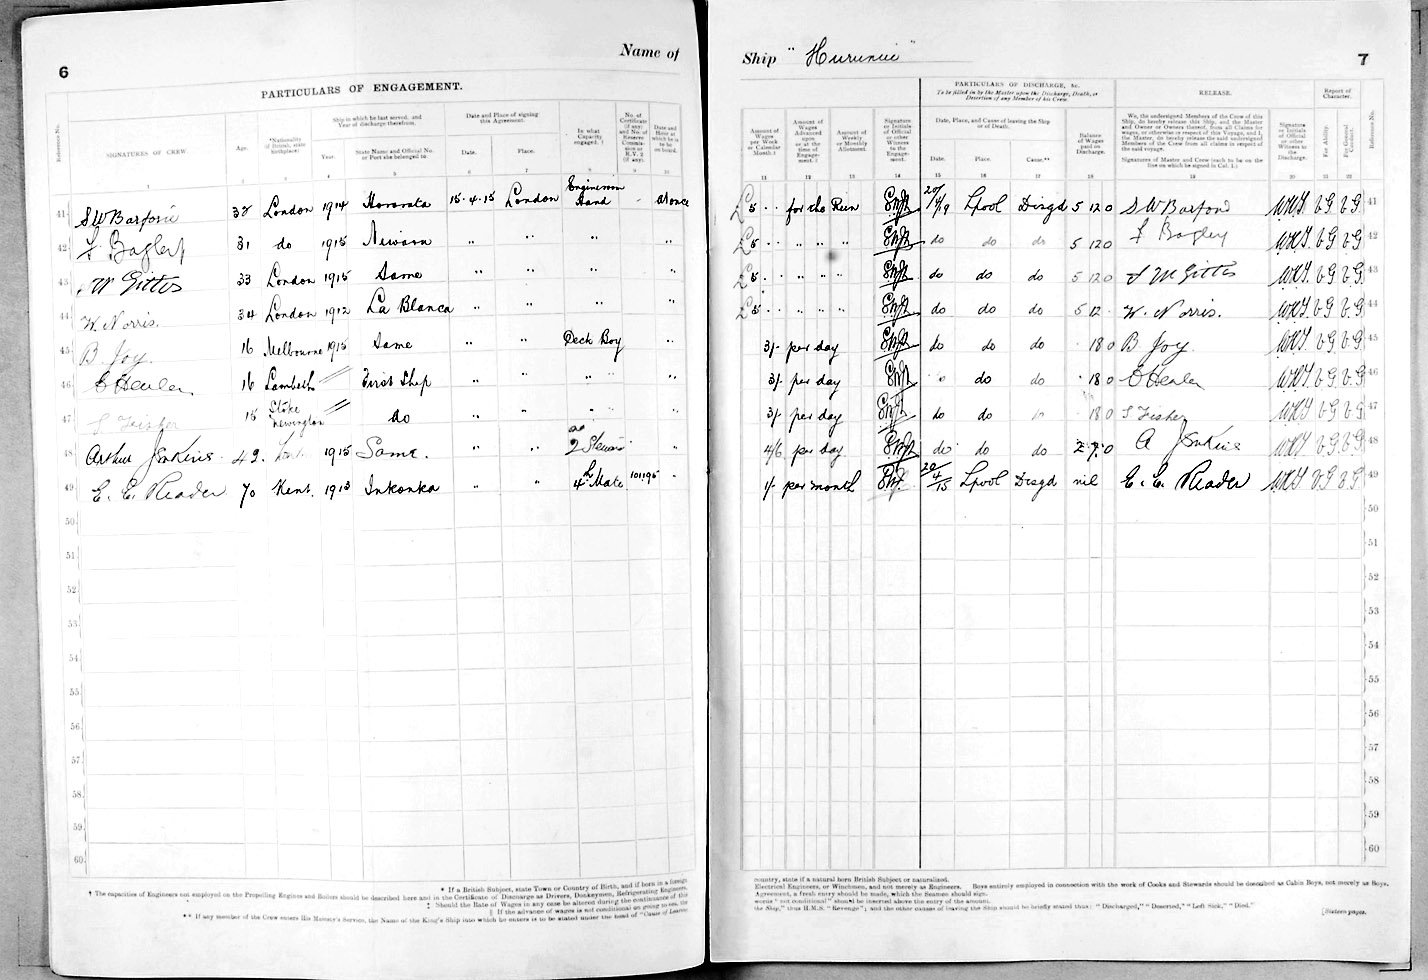 6
Name of
Ship " Hurunui "
7
PARTICULARS OF ENGAGEMENT.
Reference No.
SIGNATURES OF CREW
Age.
*Nationality (if British, state birthplace).
Ship in which he last served, and Year of discharge therefrom.
Year.
State Name and Official No. or Port she belonged to.
Date and Place of signing this Agreement.
Date.
Place.
In what Capacity engaged. †
No. of Certificate (if any) and No. of Reserve Commission or R.V. 2 (if any).
Date and Hour at which he is to be on board.
1 2 3 4 5 6 7 8 9 10
41 S W Barford 38 London 1914 Hororata 15.4.15 London Engineroom Hand - at once
42 F Bagley 31 do 1915 " " " "
43 W Gittes 33 London 1915 Same " " " "
44 W. Norris. 34 London 1912 La Blanca " " " "
45 B Joy. 16 Melbourne 1915 Same " " Deck Boy "
46 16 Lambeth First Ship " " " "
47 S Fisher 15 Stoke Newington do " " " "
48 Arthur Jenkins 49. 1915 Same. " " 2 Steward "
49 E. E. Reader 70 Kent. 1913 Inkonka " " 4th Mate 101195 "
50
51
52
53
54
55
56
57
58
59
60
* If a British Subject, state Town or Country of Birth, and if born in a foreign
† The capacities of Engineers not employed on the Propelling Engines and Boilers should be described here and in the Certificate of Discharge as Drivers, Donkeymen, Refrigerating Engineers,
‡ Should the Rate of Wages in any case be altered during the continuance of the
|| If the advance of wages is not conditional on going to sea, the
** If any member of the Crew enters His Majesty's Service, the Name of the King's Ship into which he enters is to be stated under the head of "Cause of Leaving
Amount of Wages per Week or Calendar Month. ‡
Amount of Wages Advanced upon or at the time of Engagement. ||
Amount of Weekly or Monthly Allotment.
Signature or Initials of Official or other Witness to the Engagement.
PARTICULARS OF DISCHARGE, &c.
To be filled in by the Master upon the Discharge, Death, or Desertion of any Member of his Crew.
Date, Place, and Cause of leaving the Ship or of Death.
Date.
Place.
Cause.**
Balance of Wages paid on Discharge.
RELEASE.
We, the undersigned Members of the Crew of this Ship, do hereby release this Ship, and the Master and Owner or Owners thereof, from all Claims for wages, or otherwise in respect of this Voyage, and I, the Master, do hereby release the said undersigned Members of the Crew from all claims in respect of the said voyage.
Signatures of Master and Crew (each to be on the line on which he signed in Col. 1.)
Signature or Initials of Official or other Witness to the Discharge.
Report of Character.
For Ability.
For General Conduct.
Reference No.
11 12 13 14 15 16 18 19 20 21 22
£5 . . for the Run Lpool Disgd 5 12 0 S W Barford V.G V.G. 41
£5 . . " " " do do do 5 12 0 F Bagley V.G V.G. 42
£5 . . " " " do do do 5 12 0 V.G V.G. 43
£5 . . " " " do do do 5 12 . W. Norris. V.G V.G. 44
3/- per day do do do . 18 0 B Joy V.G V.G. 45
3/- per day do do . 18 0 V.G V.G. 46
3/- per day do do . 18 0 S Fisher V.G V.G. 47
4/6 per day do do do 2 7 0 A Jenkins V.G V.G. 48
1/- per month 20/4/15 Lpool Disgd nil E. E. Reader V.G V.G 49
50
51
52
53
54
55
56
57
58
59
60
country, state if a natural born British Subject or naturalized.
Electrical Engineers, or Winchmen, and not merely as Engineers. Boys entirely employed in connection with the work of Cooks and Stewards should be described as Cabin Boys, not merely as Boys.
Agreement, a fresh entry should be made, which the Seamen should sign.
words "not conditional" should be inserted above the entry of the amount.
the Ship," thus H.M.S. "Revenge"; and the other causes of leaving the Ship should be briefly stated thus: "Discharged," "Deserted," "Left Sick," "Died."
[Sixteen pages.